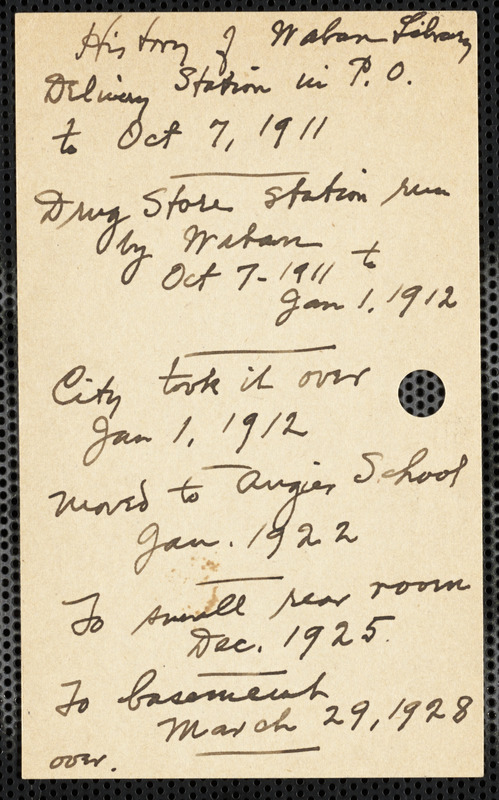 History of Waban Library
Delivery Station in P. O.
to Oct 7, 1911
Drug Store station run
by Waban
Oct 7 - 1911 to
Jan 1, 1912
City took it over
Jan 1, 1912
moved to Angier School
Jan. 1922
To small rear room
Dec. 1925.
To basement
March 29, 1928
over.